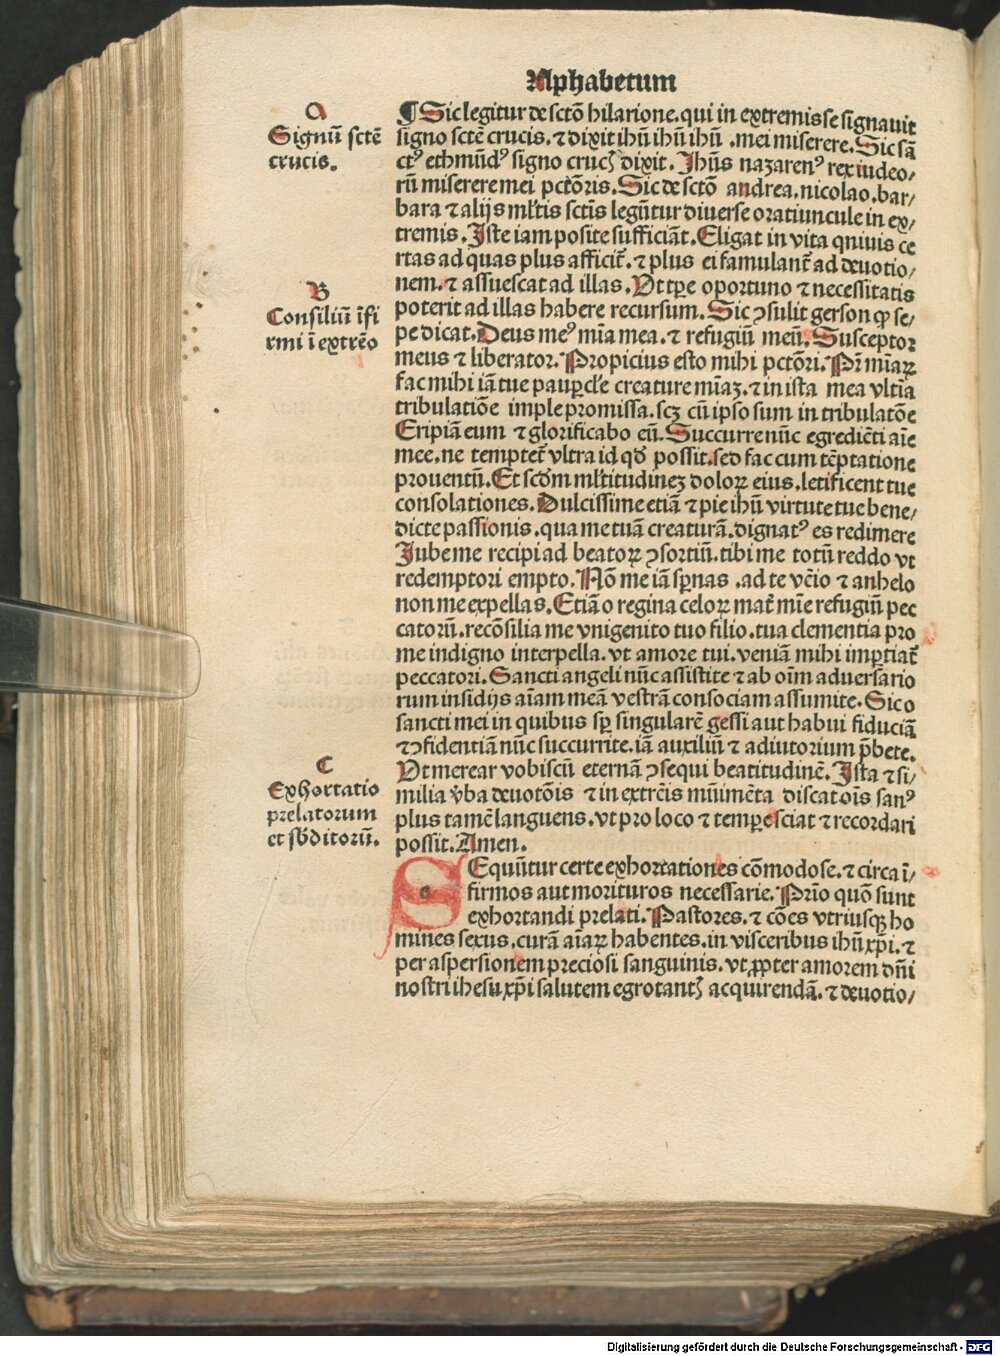 Alphabetum
A
Signū sctē
crucis.
¶ Sic legitur de sctō hilarione. qui in extremis se signauit
signo sctē crucis. ⁊ dixit ihū ihū ihū .mei miserere. Sic sā
ctꝰ ethmūdꝰ signo crucꝭ dixit. Jhūs nazarenꝰ rex iudeo/
rū miserere mei pctōris. Sic de sctō andrea. nicolao. bar/
bara ⁊ alijs ml̄tis sctīs legūtur diuerse oratiuncule in ex/
tremis. Iste iam posite sufficiāt. Eligat in vita quiuis ce
rtas ad quas plus afficit̄. ⁊ plus ei famulant̄ ad deuotio/
nem. ⁊ assuescat ad illas. Vt tꝑe oportuno ⁊ necessitatis
B
Consiliū īfi
rmi ī extrēo
poterit ad illas habere recursum. Sic ꝯsulit gerson ꝙ se/
pe dicat. Deus meꝰ mīa mea. ⁊ refugiū meū. Susceptor
meus ⁊ liberator. Propicius esto mihi pctōri. Pr̄ mīaꝝ
fac mihi iā tue pauꝑcl̄e creature mīaꝫ. ⁊ in ista mea vltīa
tribulatiōe imple promissa. scꝫ cū ipso sum in tribulatōe
Eripiā eum ⁊ glorificabo eū. Succurre nūc egrediēti aīe
mee. ne temptet̄ vltra id qd̄ possit. sed fac cum tēptatione
prouentū. Et scd̄m ml̄titudineꝫ doloꝝ eius. letificent tue
consolationes. Dulcissime etiā ⁊ pie ihū virtute tue bene/
dicte passionis. qua me tuā creaturā. dignatꝰ es redimere
Iube me recipi ad beatoꝝ ꝯsortiū. tibi me totū reddo vt
redemptori empto. Nō me iā sꝑnas .ad te vēio ⁊ anhelo
non me expellas. Etiā o regina celoꝝ mat̄ mīe refugiū pec
catorū. recōsilia me vnigenito tuo filio. tua clementia pro
me indigno interpella. vt amore tui. veniā mihi imꝑtiat̄
peccatori. Sancti angeli nūc assistite ⁊ ab oīm aduersario
rum insidijs aīam meā vestrā consociam assumite. Sic o
sancti mei in quibus sꝑ singularē gessi aut habui fiduciā
⁊ ꝯfidentiā nūc succurrite. iā auxiliū ⁊ adiutorium p̄bete.
C
Exhortatio
prelatorum
et sb̄ditorū.
Vt merear vobiscū eternā ꝯsequi beatitudinē. Ista ⁊ si/
milia v̄ba deuotōis ⁊ in extrēis mūimēta discat oīs sanꝰ
plus tamē languens. vt pro loco ⁊ tempore sciat ⁊ recordari
possit. Amen.
SEquūtur certe exhortationes cōmodose. ⁊ circa ī/
firmos aut morituros necessarie. Prīo quō sunt
exhortandi prelati. Pastores. ⁊ cōes vtriusqꝫ ho
mines sexus. curā aīaꝝ habentes. in visceribus ihū xp̄i. ⁊
per aspersionem preciosi sanguinis. vt ꝓpter amorem dn̄i
nostri ihesu xp̄i salutem egrotantꝭ acquirendā. ⁊ deuotio/
Digitalisierung gefördert durch die Deutsche Forschungsgemeinschaft - DFG